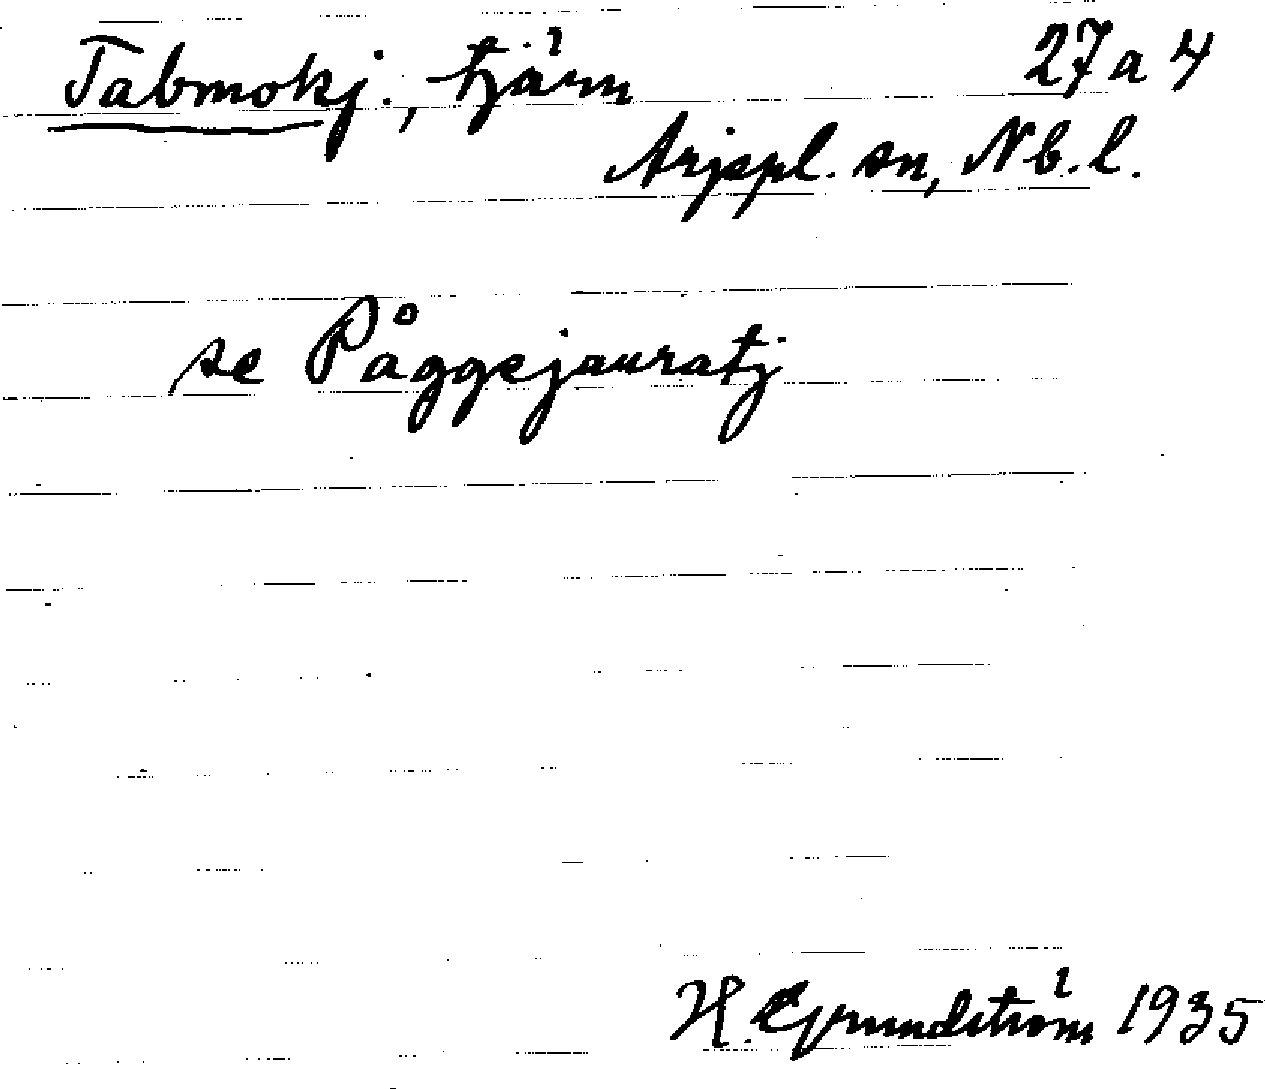 Tabmokj., tjärn 27 a 4
Arjepl. sn, Nb. l.
se Påggejauratj
H. Grundström 1935